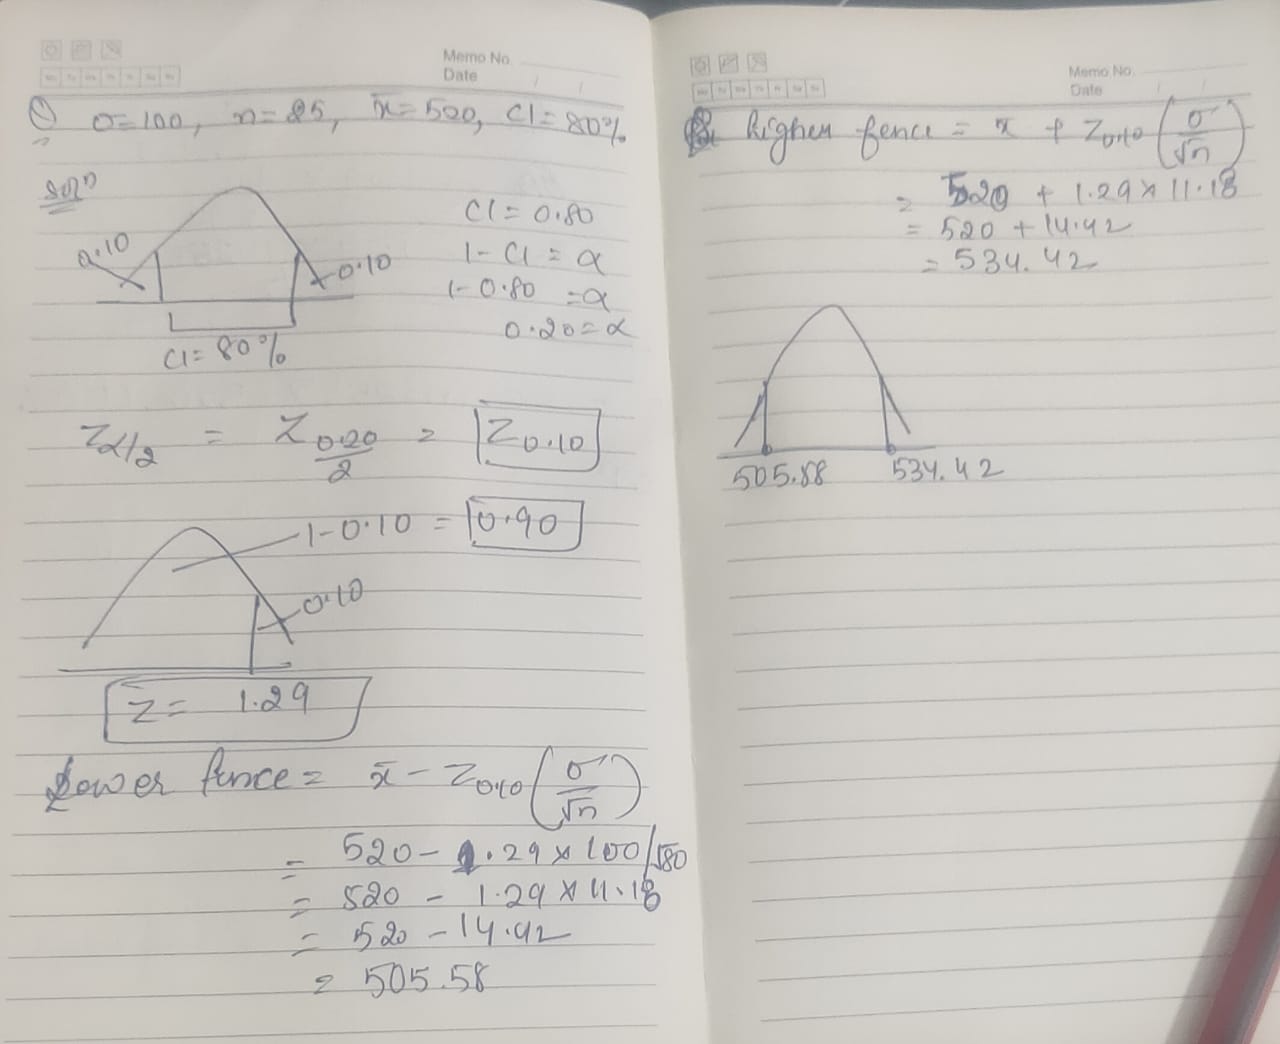 Memo No.
Date
① σ=100, n=25, x̄=520, CI=80%
Solⁿ
0.10
0.10
CI= 80%
CI = 0.80
1- CI = α
1- 0.80 = α
0.20 = α
Zα/2 = Z0.20/2 = Z0.10
1-0.10 = 0.90
0.10
Z = 1.29
Lower fence = x̄ - Z0.10 (σ/√n)
= 520 - 1.29 × 100/√80
= 520 - 1.29 × 11.18
= 520 - 14.42
= 505.58
Memo No.
Date
higher fence = x + Z0.10 (σ/√n)
= 520 + 1.29 × 11.18
= 520 + 14.42
= 534.42
505.58 534.42